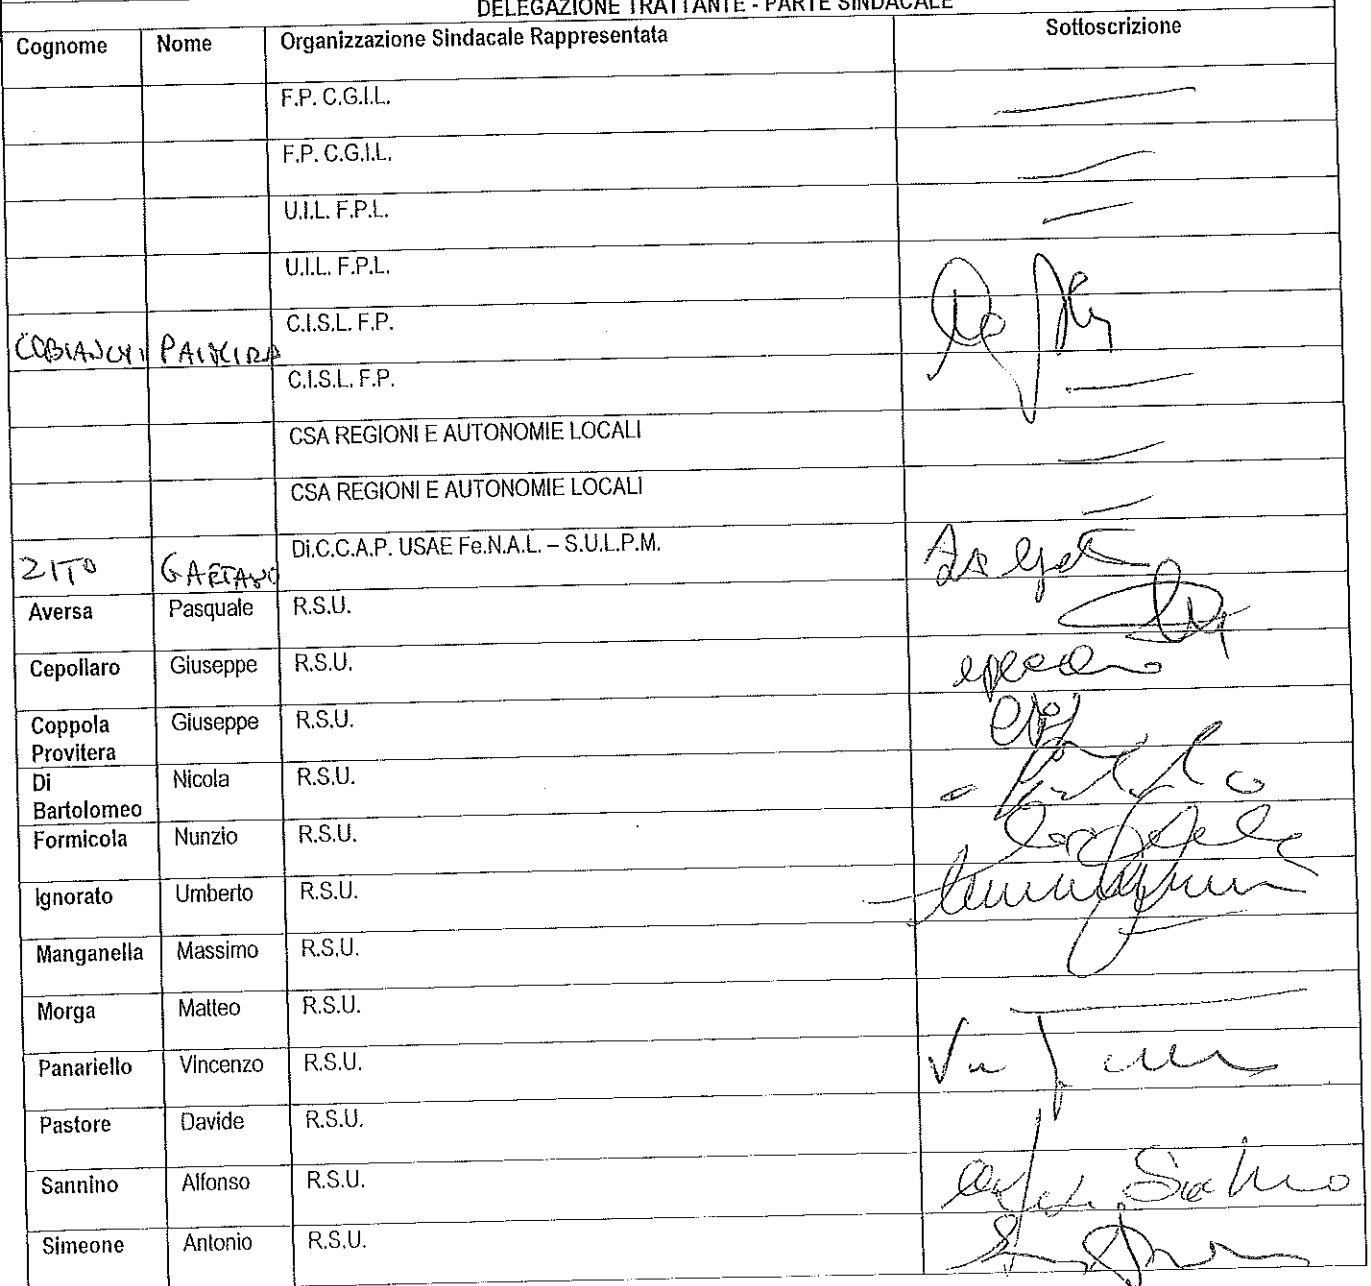 DELEGAZIONE TRATTANTE - PARTE SINDACALE
Cognome Nome Organizzazione Sindacale Rappresentata Sottoscrizione
F.P. C.G.I.L.
F.P. C.G.I.L.
U.I.L. F.P.L.
U.I.L. F.P.L.
COBIANCHI C.I.S.L. F.P.
C.I.S.L. F.P.
CSA REGIONI E AUTONOMIE LOCALI
CSA REGIONI E AUTONOMIE LOCALI
ZITO GAETANO Di.C.C.A.P. USAE Fe.N.A.L. – S.U.L.P.M.
Aversa Pasquale R.S.U.
Cepollaro Giuseppe R.S.U.
Coppola Giuseppe R.S.U.
Provitera
Di Nicola R.S.U.
Bartolomeo
Formicola Nunzio R.S.U.
Ignorato Umberto R.S.U.
Manganella Massimo R.S.U.
Morga Matteo R.S.U.
Panariello Vincenzo R.S.U.
Pastore Davide R.S.U.
Sannino Alfonso R.S.U.
Simeone Antonio R.S.U.